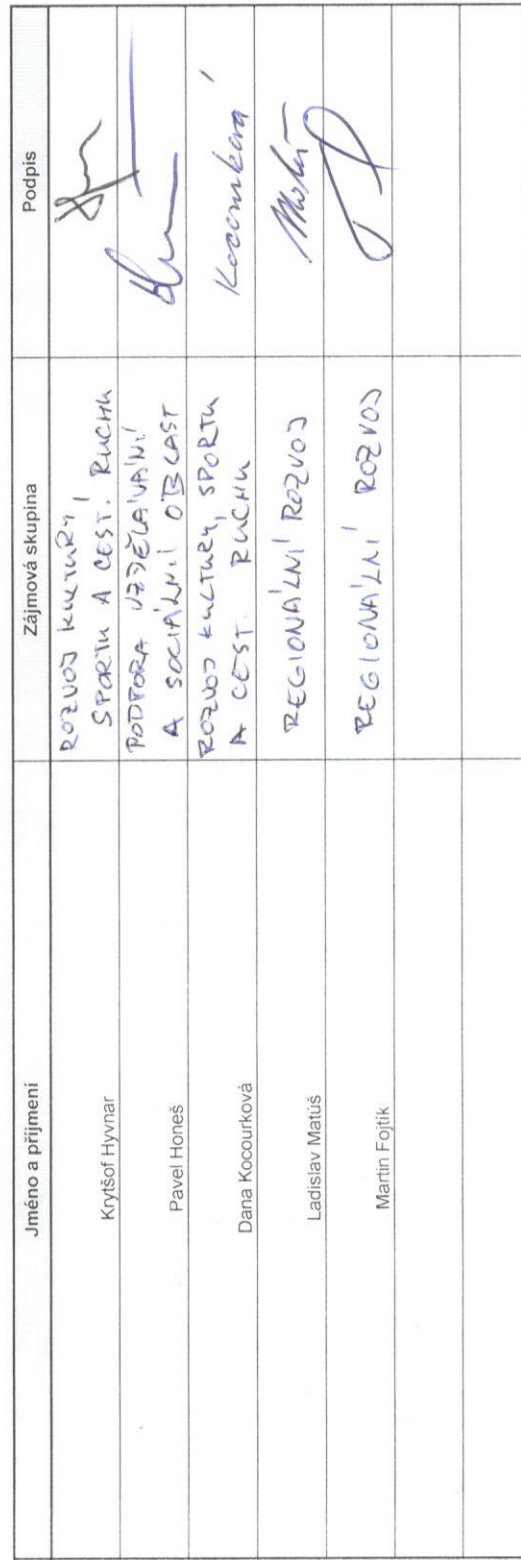 Jméno a příjmení Zájmová skupina Podpis
Krytšof Hyvnar
ROZVOJ KULTURY,
SPORTU A CEST. RUCHU
Pavel Honeš
PODPORA VZDĚLAVÁNÍ
A SOCIÁLNÍ OBLAST
Dana Kocourková
ROZVOJ KULTURY, SPORTU
A CEST. RUCHU
Kocourková
Ladislav Matúš
REGIONÁLNÍ ROZVOJ
Martin Fojtík
REGIONÁLNÍ ROZVOJ